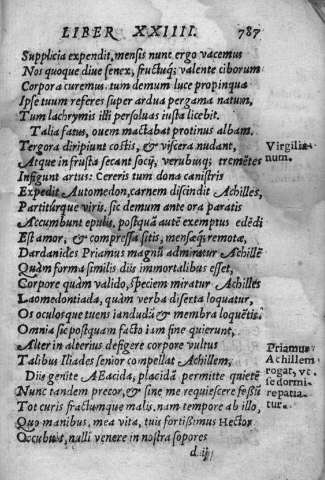 LIBER XXIIII. 787
Supplicia expendit, mensis nunc ergo vacemus
Nos quoque diue senex, fructuq; valente ciborum
Corpora curemus: tum demum luce propinqua
Ipse tuum referes super ardua pergama natum,
Tum lachrymis illi persoluas iusta licebit.
Talia fatus, ouem mactabat protinus albam.
Tergora diripiunt costis, & viscera nudant,
Atque in frusta secant socij, verubúsq; tremẽtes
Infigunt artus: Cereris tum dona canistris
Expedit Automedon, carnem discindit Achilles,
Partitúrque viris. sic demum ante ora paratis
Accumbunt epulis. postquã autẽ exemptus edẽdi
Est amor, & compressa sitis, mensæq; remotæ,
Dardanides Priamus magnũ admiratur Achillẽ
Quàm forma similis diis immortalibus esset,
Corpore quàm valido, speciem miratur Achilles
Laomedontiadæ, quàm verba diserta loquatur,
Os oculosque tuens iandudũ & membra loquẽtis.
Omnia sic postquam facto iam fine quierunt,
Alter in alterius defigere corpora vultus
Talibus Iliades senior compellat Achillem,
Diis genite AEacida, placidã permitte quietẽ
Nunc tandem precor, & sine me requiescere fessũ
Tot curis fractumque malis. nam tempore ab illo,
Quo manibus, mea vita, tuis fortissimus Hector
Occubuit, nulli venere in nostra sopores
d.iij
Virgilia-
num.
Priamus
Achillem
rogat, vt
se dormi-
re patia-
tur.